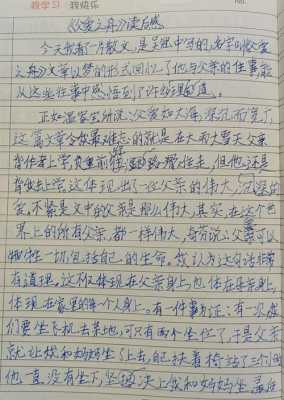 我学习 我快乐
No.
《父爱之舟》读后感
今天我看了一篇散文，是吴冠中写的，名字叫《父爱
之舟》文章以梦的形式回忆了他与父亲的往事，
从这些往事中感悟到了许多
正如温客所说父爱如大海，深沉而宽广，
这篇文章令我最难忘的就是在大雨大雪天父亲
背他去上学，走，但他还是
背他去上学这体现出了一位父亲的伟大，
爱，不紧是文中的父亲是那么伟大，其实，在这个世
界上的所有父亲，都一样伟大，说：父亲可以
牺牲一切，包括自己的生命，我认为这句话非常
有道理，这不仅体现在父亲身上，也体在母亲身上，
体现在家里的每一个人身上。有一件事为证：有一次我
们要坐飞机去某地，可只有两个坐位了，于是父亲
就让我和妈妈坐了上去，自己扶着椅站了三个小时
他一直没有坐下，坚持 让我和妈妈坐